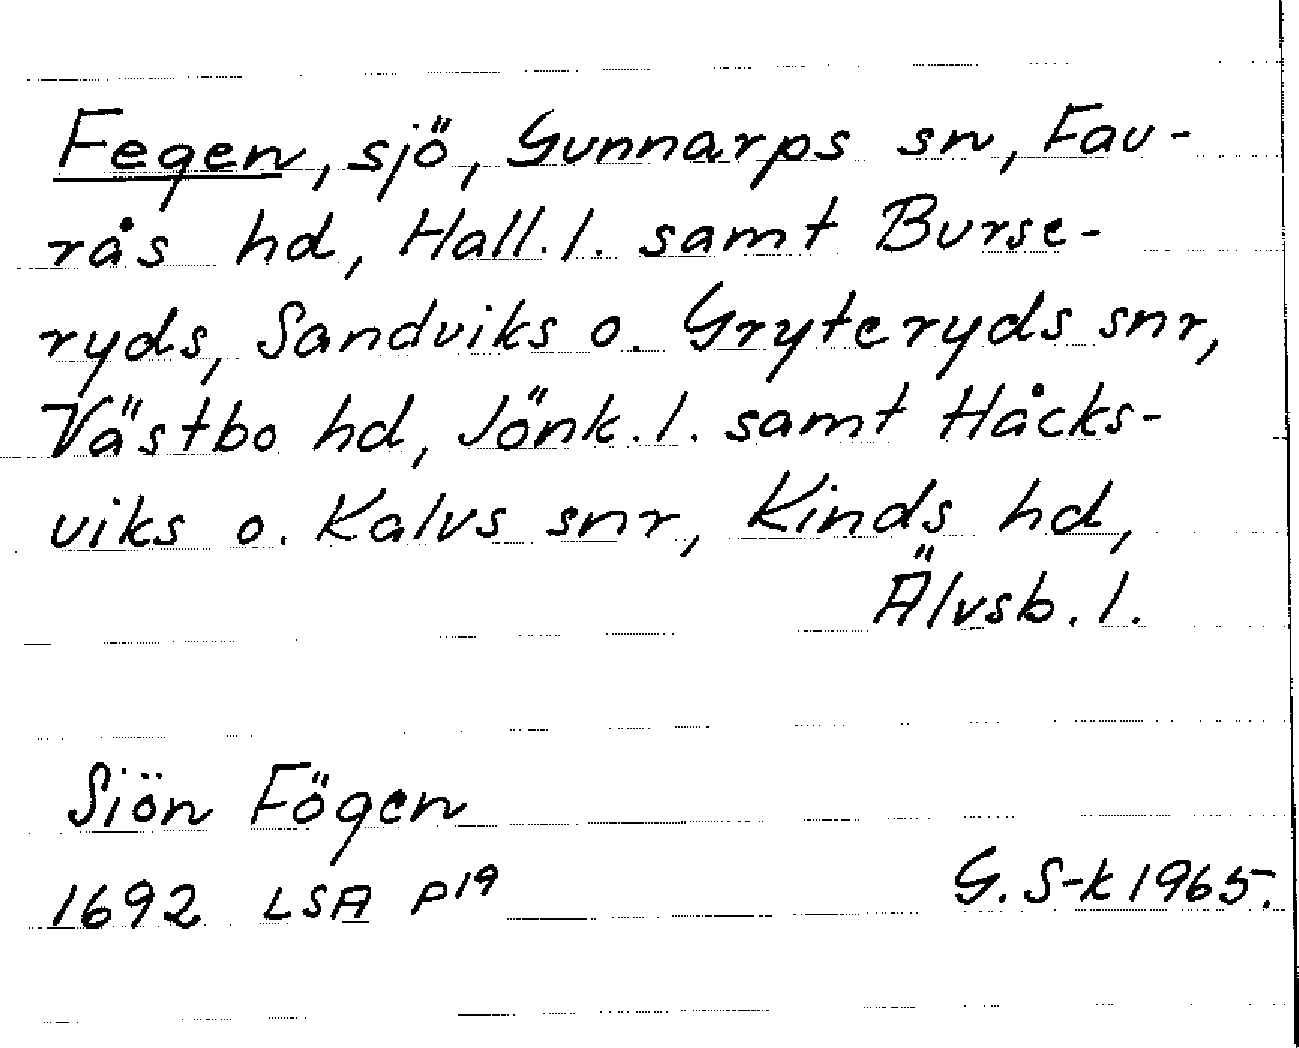 Fegen, sjö, Gunnarps sn, Fau-
rås hd, Hall. l. samt Burse-
ryds, Sandviks o. Gryteryds snr,
Västbo hd, Jönk. l. samt Håcks-
viks o. Kalvs snr, Kinds hd,
Älvsb. l.
Siön Fögen
1692 LSA P19
G. S-k 1965.